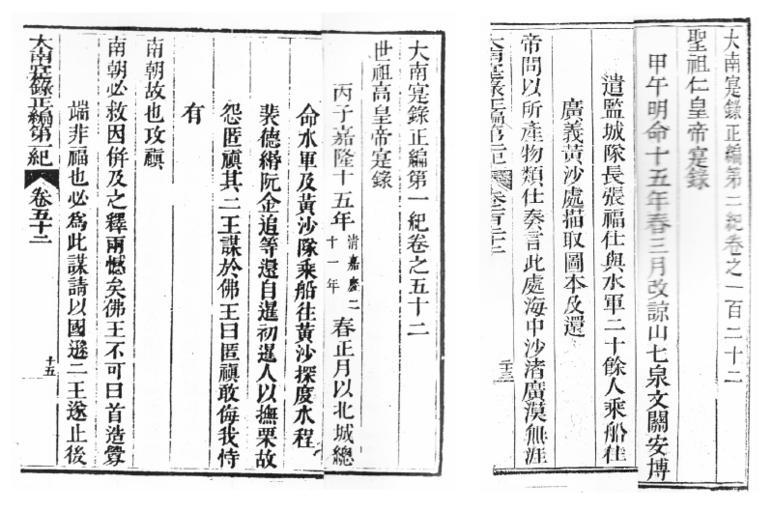 大南寔錄正編第二紀卷之一百二十二
聖祖仁皇帝寔錄
甲午明命十五年春三月改諒山七泉文關安博
遣監城隊長張福仕與水軍二十餘人乘船往
廣義黃沙處描取圖本及還
帝問以所產物類仕奏言此處海中沙渚廣漠無涯
大南寔錄正編第二紀 卷一百二十二
二十三
大南寔錄正編第一紀卷之五十二
世祖高皇帝寔錄
丙子嘉隆十五年清嘉慶二十一年春正月以北城總
命水軍及黃沙隊乘船往黃沙探度水程
裴德緡阮金追等還自暹初暹人以撫栗故
怨匿禛其二王謀於佛王曰匿禛敢侮我恃
有
南朝故也攻禛
南朝必救因併及之釋兩憾矣佛王不可曰首造釁
端非福也必為此謀請以國遜二王遂止後
大南寔錄正編第一紀 卷五十二
十五